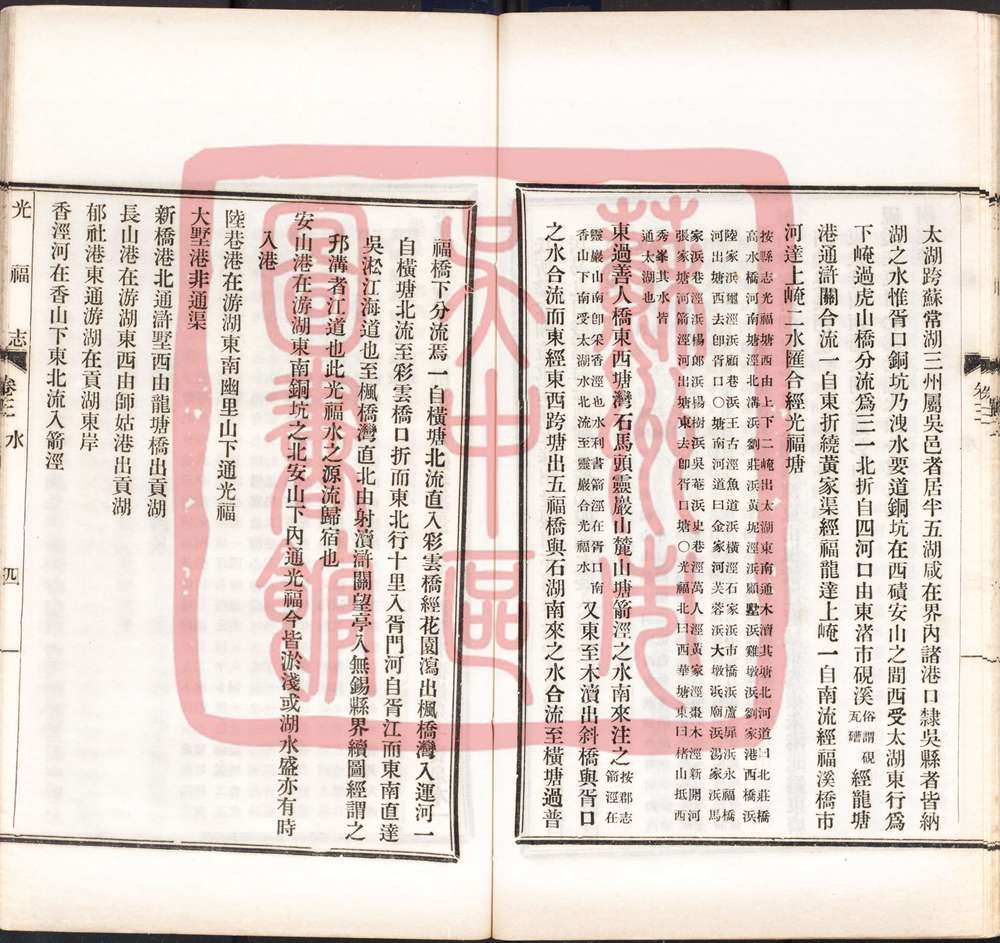 太湖跨蘇常湖三州屬吳邑者居半五湖咸在界內諸港口隸吳縣者皆納
湖之水惟胥口銅坑乃洩水要道銅坑在西磧安山之間西受太湖東行爲
下崦過虎山橋分流爲三一北折自四河口由東渚市硯溪俗謂硯瓦礶經龍塘
港通滸關合流一自東折繞黃家渠經福龍達上崦一自南流經福溪橋市
河達上崦二水匯合經光福塘
按縣志光福塘西由上下二崦出太湖東南通木瀆其塘北河道曰北莊橋
高水橋河南塘涇北溝浜劉莊浜黃坭涇浜顧墅浜雞墩浜劉家港西橋浜
陸家浜壩涇浜顧巷浜王古涇魚道浜橫涇石家浜市橋浜蘆扉浜永福橋
河出塘西去卽胥口〇塘南河道曰金家河芙蓉浜大墩浜廟浜湯家浜馬
家浜巷涇浜楊郎浜楊樹浜吳菴浜史巷涇萬人涇黃家涇棗木涇新開河
張家塘河箭涇河出塘東去卽胥口塘〇光福北曰西華塘東曰楮山坻西
秀峯其水皆
通太湖也
東過善人橋東西塘灣石馬頭靈巖山麓山塘箭涇之水南來注之按郡志箭涇在
靈巖山南卽采香涇也水利書箭涇在胥口南
香山下南受太湖水北流至靈巖合光福水又東至木瀆出斜橋與胥口
之水合流而東經東西跨塘出五福橋與石湖南來之水合流至橫塘過普
福橋下分流焉一自橫塘北流直入彩雲橋經花園瀉出楓橋灣入運河一
自橫塘北流至彩雲橋口折而東北行十里入胥門河自胥江而東南直達
吳淞江海道也至楓橋灣直北由射瀆滸關望亭入無錫縣界續圖經謂之
邗溝者江道也此光福水之源流歸宿也
安山港在游湖東南銅坑之北安山下內通光福今皆淤淺或湖水盛亦有時
入港
陸巷港在游湖東南幽里山下通光福
大墅港非通渠
新橋港北通滸墅西由龍塘橋出貢湖
長山港在游湖東西由師姑港出貢湖
郁社港東通游湖在貢湖東岸
香涇河在香山下東北流入箭涇
光福志
卷三 水
四
蘇州市
吳中區
圖書館